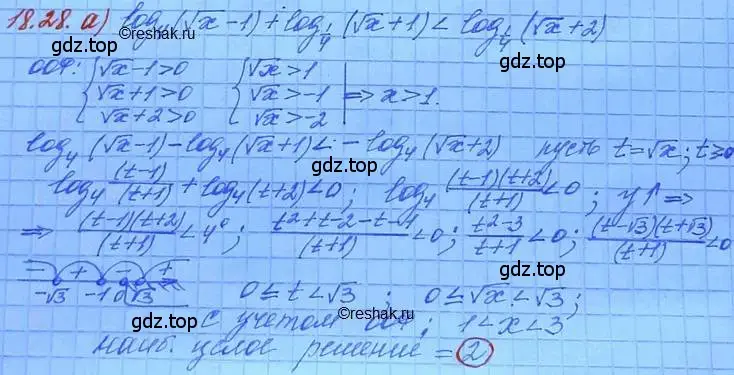 18.28. а) log₄(√x -1) + log_{1/4}(√x +1) < log_{1/4}(√x +2)
©reshak.ru
gdz.top gdz.top
ООФ: { √x -1>0 { √x >1
√x +1>0 √x >-1 | => x>1.
√x +2>0 √x >-2
gdz.top
log₄(√x -1) - log₄(√x +1) < - log₄(√x +2) пусть t=√x; t≥0
gdz.top
log₄ (t-1)/(t+1) + log₄(t+2)<0; log₄ (t-1)(t+2)/(t+1) <0; y↑ =>
=> (t-1)(t+2)/(t+1) < 4⁰; t²+t-2-t-1/(t+1) <0; t²-3/t+1 <0; (t-√3)(t+√3)/(t+1) <0
gdz.top gdz.top
- + - +
-√3 -1 0 √3 0≤t<√3; 0≤√x<√3;
©reshak.ru
gdz.top
с учетом ООФ; 1<x<3
наиб. целое решение = 2
gdz.top